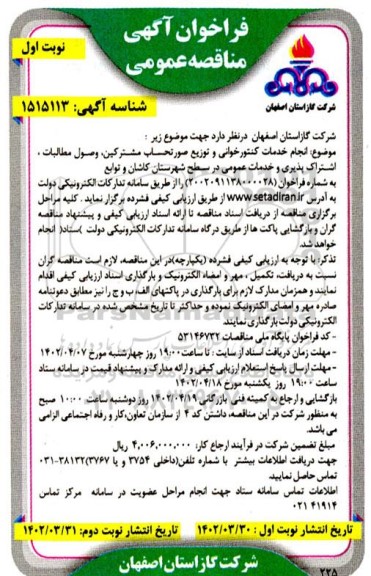 فراخوان آگهی
مناقصه عمومی
نوبت اول
شرکت گاز استان اصفهان
شناسه آگهی: ۱۵۱۵۱۱۳
شرکت گازاستان اصفهان درنظر دارد جهت موضوع زیر :
موضوع: انجام خدمات کنتورخوانی و توزیع صورتحساب مشترکین، وصول مطالبات ،
اشتراک پذیری و خدمات عمومی در سطح شهرستان کاشان و توابع
به شماره فراخوان (۲۰۰۲۰۹۱۱۳۸۰۰۰۰۲۸) را از طریق سامانه تدارکات الکترونیکی دولت
به آدرس www.setadiran.ir از طریق ارزیابی کیفی فشرده برگزار نماید . کلیه مراحل
برگزاری مناقصه از دریافت اسناد مناقصه تا ارائه اسناد ارزیابی کیفی و پیشنهاد مناقصه
گران و بازگشایی پاکت ها از طریق درگاه سامانه تدارکات الکترونیکی دولت (ستاد) انجام
خواهد شد.
تذکر: با توجه به ارزیابی کیفی فشرده (یکپارچه)در این مناقصه، لازم است مناقصه گران
نسبت به دریافت، تکمیل ، مهر و امضاء الکترونیک و بارگذاری اسناد ارزیابی کیفی اقدام
نمایند و همزمان مدارک لازم برای بارگذاری در پاکتهای الف و ب و ج را نیز مطابق دعوتنامه
صادره مهر و امضای الکترونیک نموده و حداکثر تا تاریخ مشخص شده در سامانه تدارکات
الکترونیکی دولت بارگذاری نمایند.
- کد فراخوان پایگاه ملی مناقصات ۵۳۱۴۶۷۳۲
- مهلت زمان دریافت اسناد از سایت : تا ساعت ۱۹:۰۰ روز چهارشنبه مورخ ۱۴۰۲/۰۴/۰۷
- مهلت ارسال پاسخ استعلام ارزیابی کیفی و ارائه مدارک و پیشنهاد قیمت در سامانه ستاد
ساعت ۱۹:۰۰ روز یکشنبه مورخ ۱۴۰۲/۰۴/۱۸
بازگشایی و ارجاع به کمیته فنی بازرگانی ۱۴۰۲/۰۴/۱۹ روز دوشنبه ساعت ۱۰:۰۰ صبح
به منظور شرکت در این مناقصه، داشتن کد ۴ از سازمان تعاون،کار و رفاه اجتماعی الزامی
می باشد.
مبلغ تضمین شرکت در فرآیند ارجاع کار: ۴,۰۰۶,۰۰۰,۰۰۰ ریال
جهت دریافت اطلاعات بیشتر با شماره تلفن:(داخلی ۳۷۵۴ و یا ۳۷۶۷)۳۸۱۳۲-۰۳۱
تماس حاصل نمایید.
اطلاعات تماس سامانه ستاد جهت انجام مراحل عضویت در سامانه مرکز تماس
۴۱۹۱۴ ۰۲۱
تاریخ انتشار نوبت اول : ۱۴۰۲/۰۳/۳۰
تاریخ انتشار نوبت دوم: ۱۴۰۲/۰۳/۳۱
شرکت گاز استان اصفهان
۲۳۵